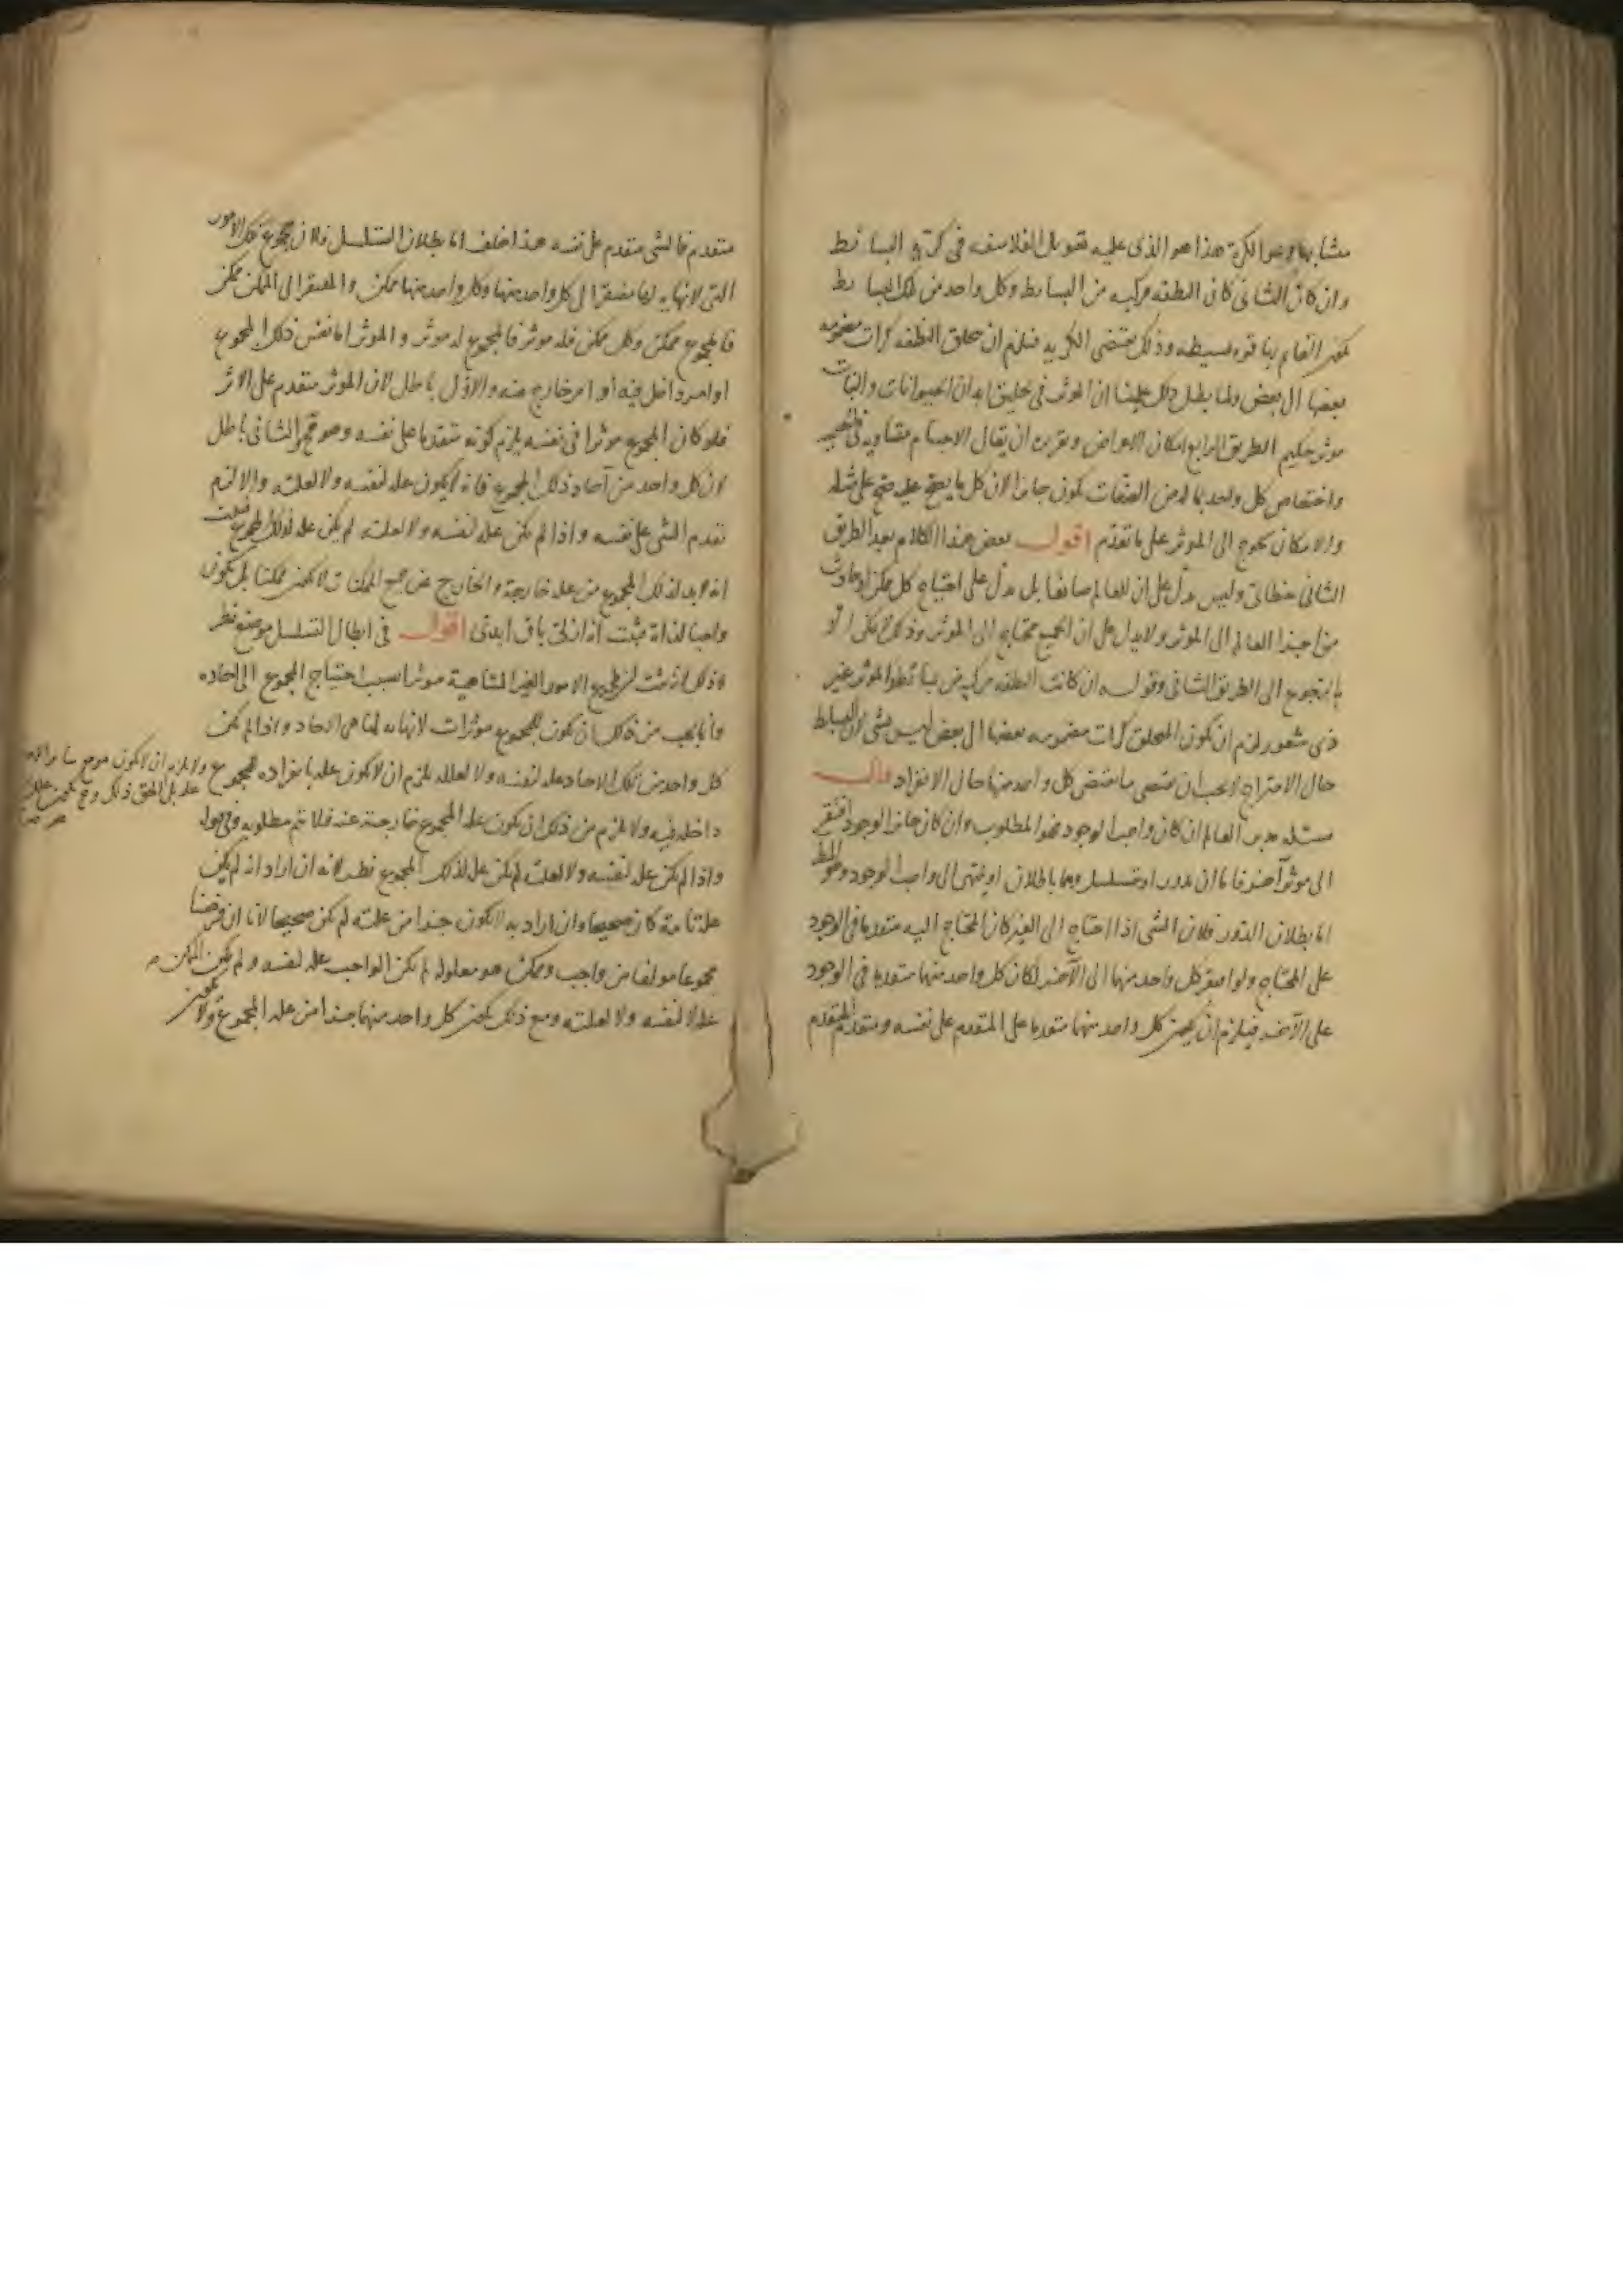 متشابها وهو الكرة هذا هو الذى عليه تعويل الفلاسفه فى كرية البسائط
وان كان الثانى كان النطفه مركبه من البسايط وكل واحد من تلك البسايط
يكون القايم بها قوه بسيطه وذلك يقتضى الكريه فيلزم ان يخلق النطفه كرات مضمومه
بعضها الى بعض ولما بطل ذلك علمنا ان الموثر فى تخليق ابدان الحيوانات والنبات
موثر حكيم الطريق الرابع امكان الاعراض وتقريره ان يقال الاجسام متساويه فى
واختصاص كل واحد بما له من الصفات يكون جايزا لان كل ما يصح عليه صح على مثله
والامكان يحوج الى الموثر على ما تقدم اقول بعض هذا الكلام بعيد الطريق
الثانى خطابى وليس يدل على ان للعالم صانعا بل يدل على احتياج كل ممكن او حادث
من اجزا العالم الى الموثر ولا يدل على ان الجميع محتاج الى الموثر وذلك لا يكفى الا
بالرجوع الى الطريق الثانى وقوله ان كانت النطفه مركبه من بسائط والموثر غير
ذى شعور لزم ان يكون المخلق كرات مضمومه بعضها الى بعض ليس بشى لان البسايط
حال الامتزاج لا يجب ان يقتضى ما يقتضى كل واحد منها حال الانفراد قال
مسئله مدبر العالم ان كان واجب الوجود فهو المطلوب وان كان جايز الوجود افتقر
الى موثر آخر فاما ان يدور او يتسلسل وهما باطلان او ينتهى الى واجب الوجود وهو المط
اما بطلان الدور فلان الشى اذا احتاج الى الغير كان المحتاج اليه متقدما فى الوجود
على المحتاج ولو افتقر كل واحد منهما الى الآخر لكان كل واحد منهما متقدما فى الوجود
على الآخر فيلزم ان يكون كل واحد منهما متقدما على المتقدم على نفسه ومتقدم المتقدم
متقدم فالشى متقدم على نفسه هذا خلف اما بطلان التسلسل فلان مجموع تلك الامور
التى لا نهايه لها مفتقر الى كل واحد منها وكل واحد منها ممكن والمفتقر الى الممكن ممكن
فالمجموع ممكن وكل ممكن فله موثر فالمجموع له موثر والموثر اما نفس ذلك المجموع
او امر داخل فيه او امر خارج عنه والاول باطل لان الموثر متقدم على الاثر
فلو كان المجموع موثرا فى نفسه يلزم كونه متقدما على نفسه وهو مح والثانى باطل
لان كل واحد من آحاد ذلك المجموع فانه لا يكون عله لنفسه ولا لعلته والا لزم
تقدم الشى على نفسه واذا لم يكن عله لنفسه ولا لعلته لم يكن عله لذلك المجموع فثبت
انه لا بد لذلك المجموع من عله خارجة والخارج عن جميع الممكنات لا يكون ممكنا بل يكون
واجبا لذاته فثبت انه ازلى باق ابدى اقول فى ابطال التسلسل موضع نظر
وذلك انه يثبت لجميع الامور الغير المتناهية موثرا بسبب احتياج المجموع الى احاده
وانما يجب من ذلك ان يكون للمجموع موثرات لا نهايه لها هى الاحاد واذا لم يكن
كل واحد من تلك الاحاد عله لنفسه ولا لعلله يلزم ان لا يكون عله بانفراده للمجموع ولا يلزم ان لا يكون مع سائر الاحاد
عله بل الحق ذلك
داخله فيه ولا يلزم من ذلك ان يكون عله المجموع خارجة عنه فلا يتم مطلوبه وفى قوله
واذا لم يكن عله لنفسه ولا لعلته لم يكن عله لذلك المجموع نظر لانه ان اراد انه لم يكن
علة تامة كان صحيحا وان اراد به لا يكون جزءا من علته لم يكن صحيحا لانا ان فرضنا
مجموعا مولفا من واجب وممكن هو معلوله لم يكن الواجب عله لنفسه ولم يكن الممكن
عله لا لنفسه ولا لعلته ومع ذلك يكون كل واحد منهما جزءا من عله المجموع ولا يكون